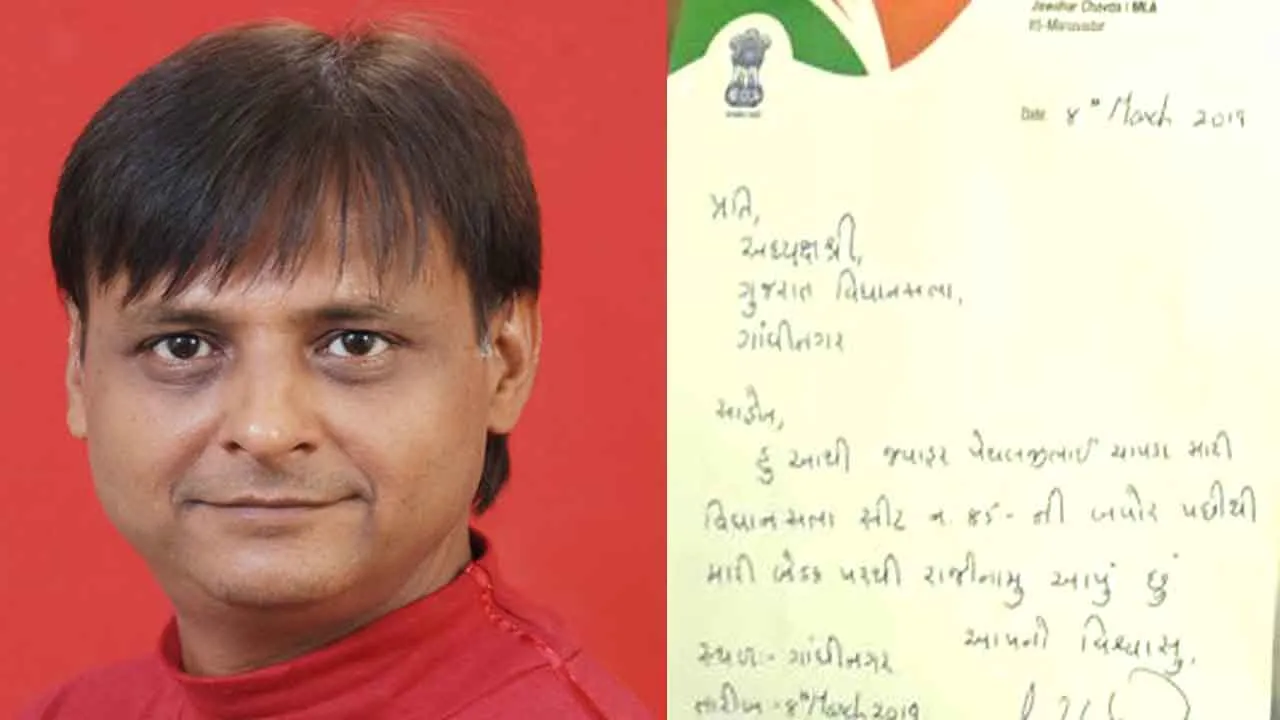 Jawahar Chavda | MLA
85-Manavadar
Date. 8th March 2019
પ્રતિ,
અધ્યક્ષશ્રી,
ગુજરાત વિધાનસભા,
ગાંધીનગર
સાહેબ,
હું આથી જવાહર પેથલજીભાઈ ચાવડા મારી
વિધાનસભા સીટ નં. ૮૫- ની બપોર પછીથી
મારી બેઠક પરથી રાજીનામુ આપું છું
આપનો વિશ્વાસુ,
સ્થળ:- ગાંધીનગર
તારીખ - 8th March 2019